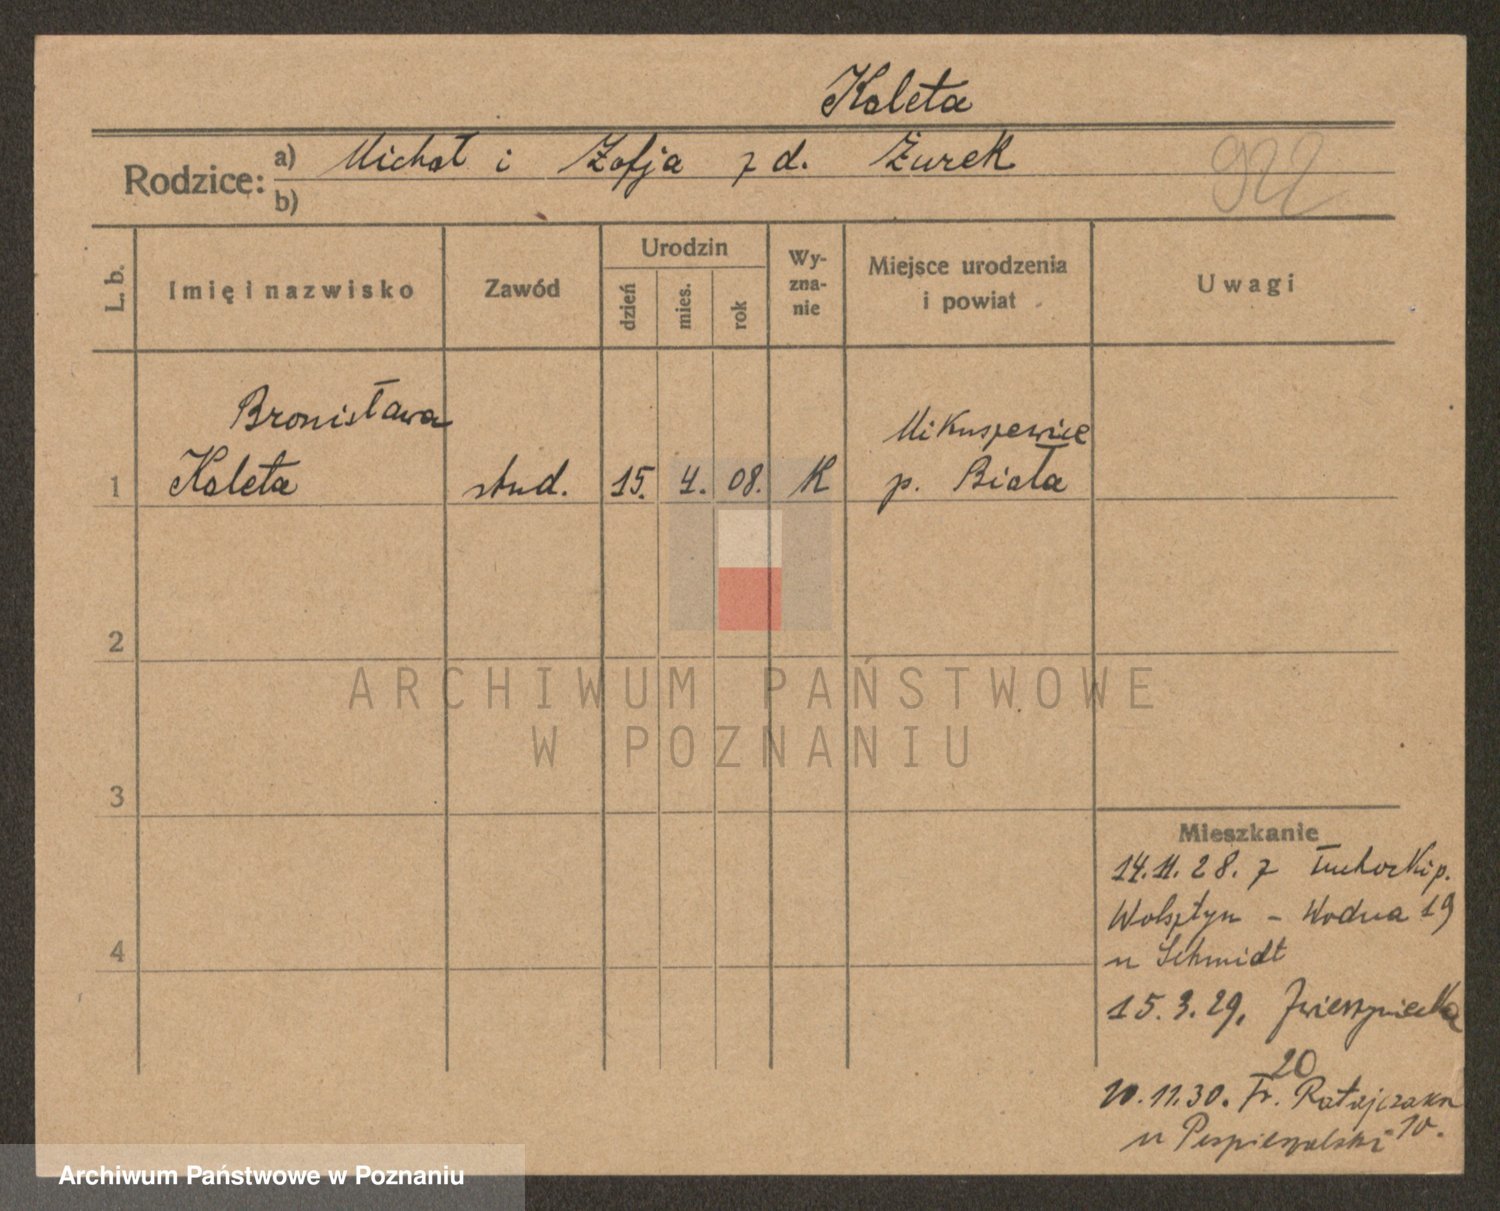 Kaleta
Rodzice: a) Michał i Zofja z d. Żurek
b)
922
L. b.
Imię i nazwisko
Zawód
Urodzin
dzień
mies.
rok
Wy-
zna-
nie
Miejsce urodzenia
i powiat
Uwagi
Bronisława
Mikuszewice
1 Kaleta stud. 15. 4. 08. K p. Biała
2
3
4
ARCHIWUM PAŃSTWOWE
W POZNANIU
Mieszkanie
14.11.28. z Tuchorki p.
Wolsztyn - Wodna 19
u Schmidt
15.3.29. Zwierzyniecka
20
10.11.30. Fr. Ratajczaka
u 10.
Archiwum Państwowe w Poznaniu